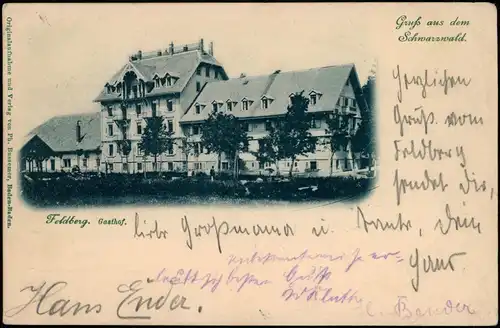 Gruß aus dem
Schwarzwald.
Originalaufnahme und Verlag von Ph. Bussemer, Baden-Baden.
Herzlichen
Gruß vom
Feldberg
sendet dir,
Feldberg. Gasthof.
liebe Großmama u.
Tante, dein
Hans
Hans Ender
Grüße